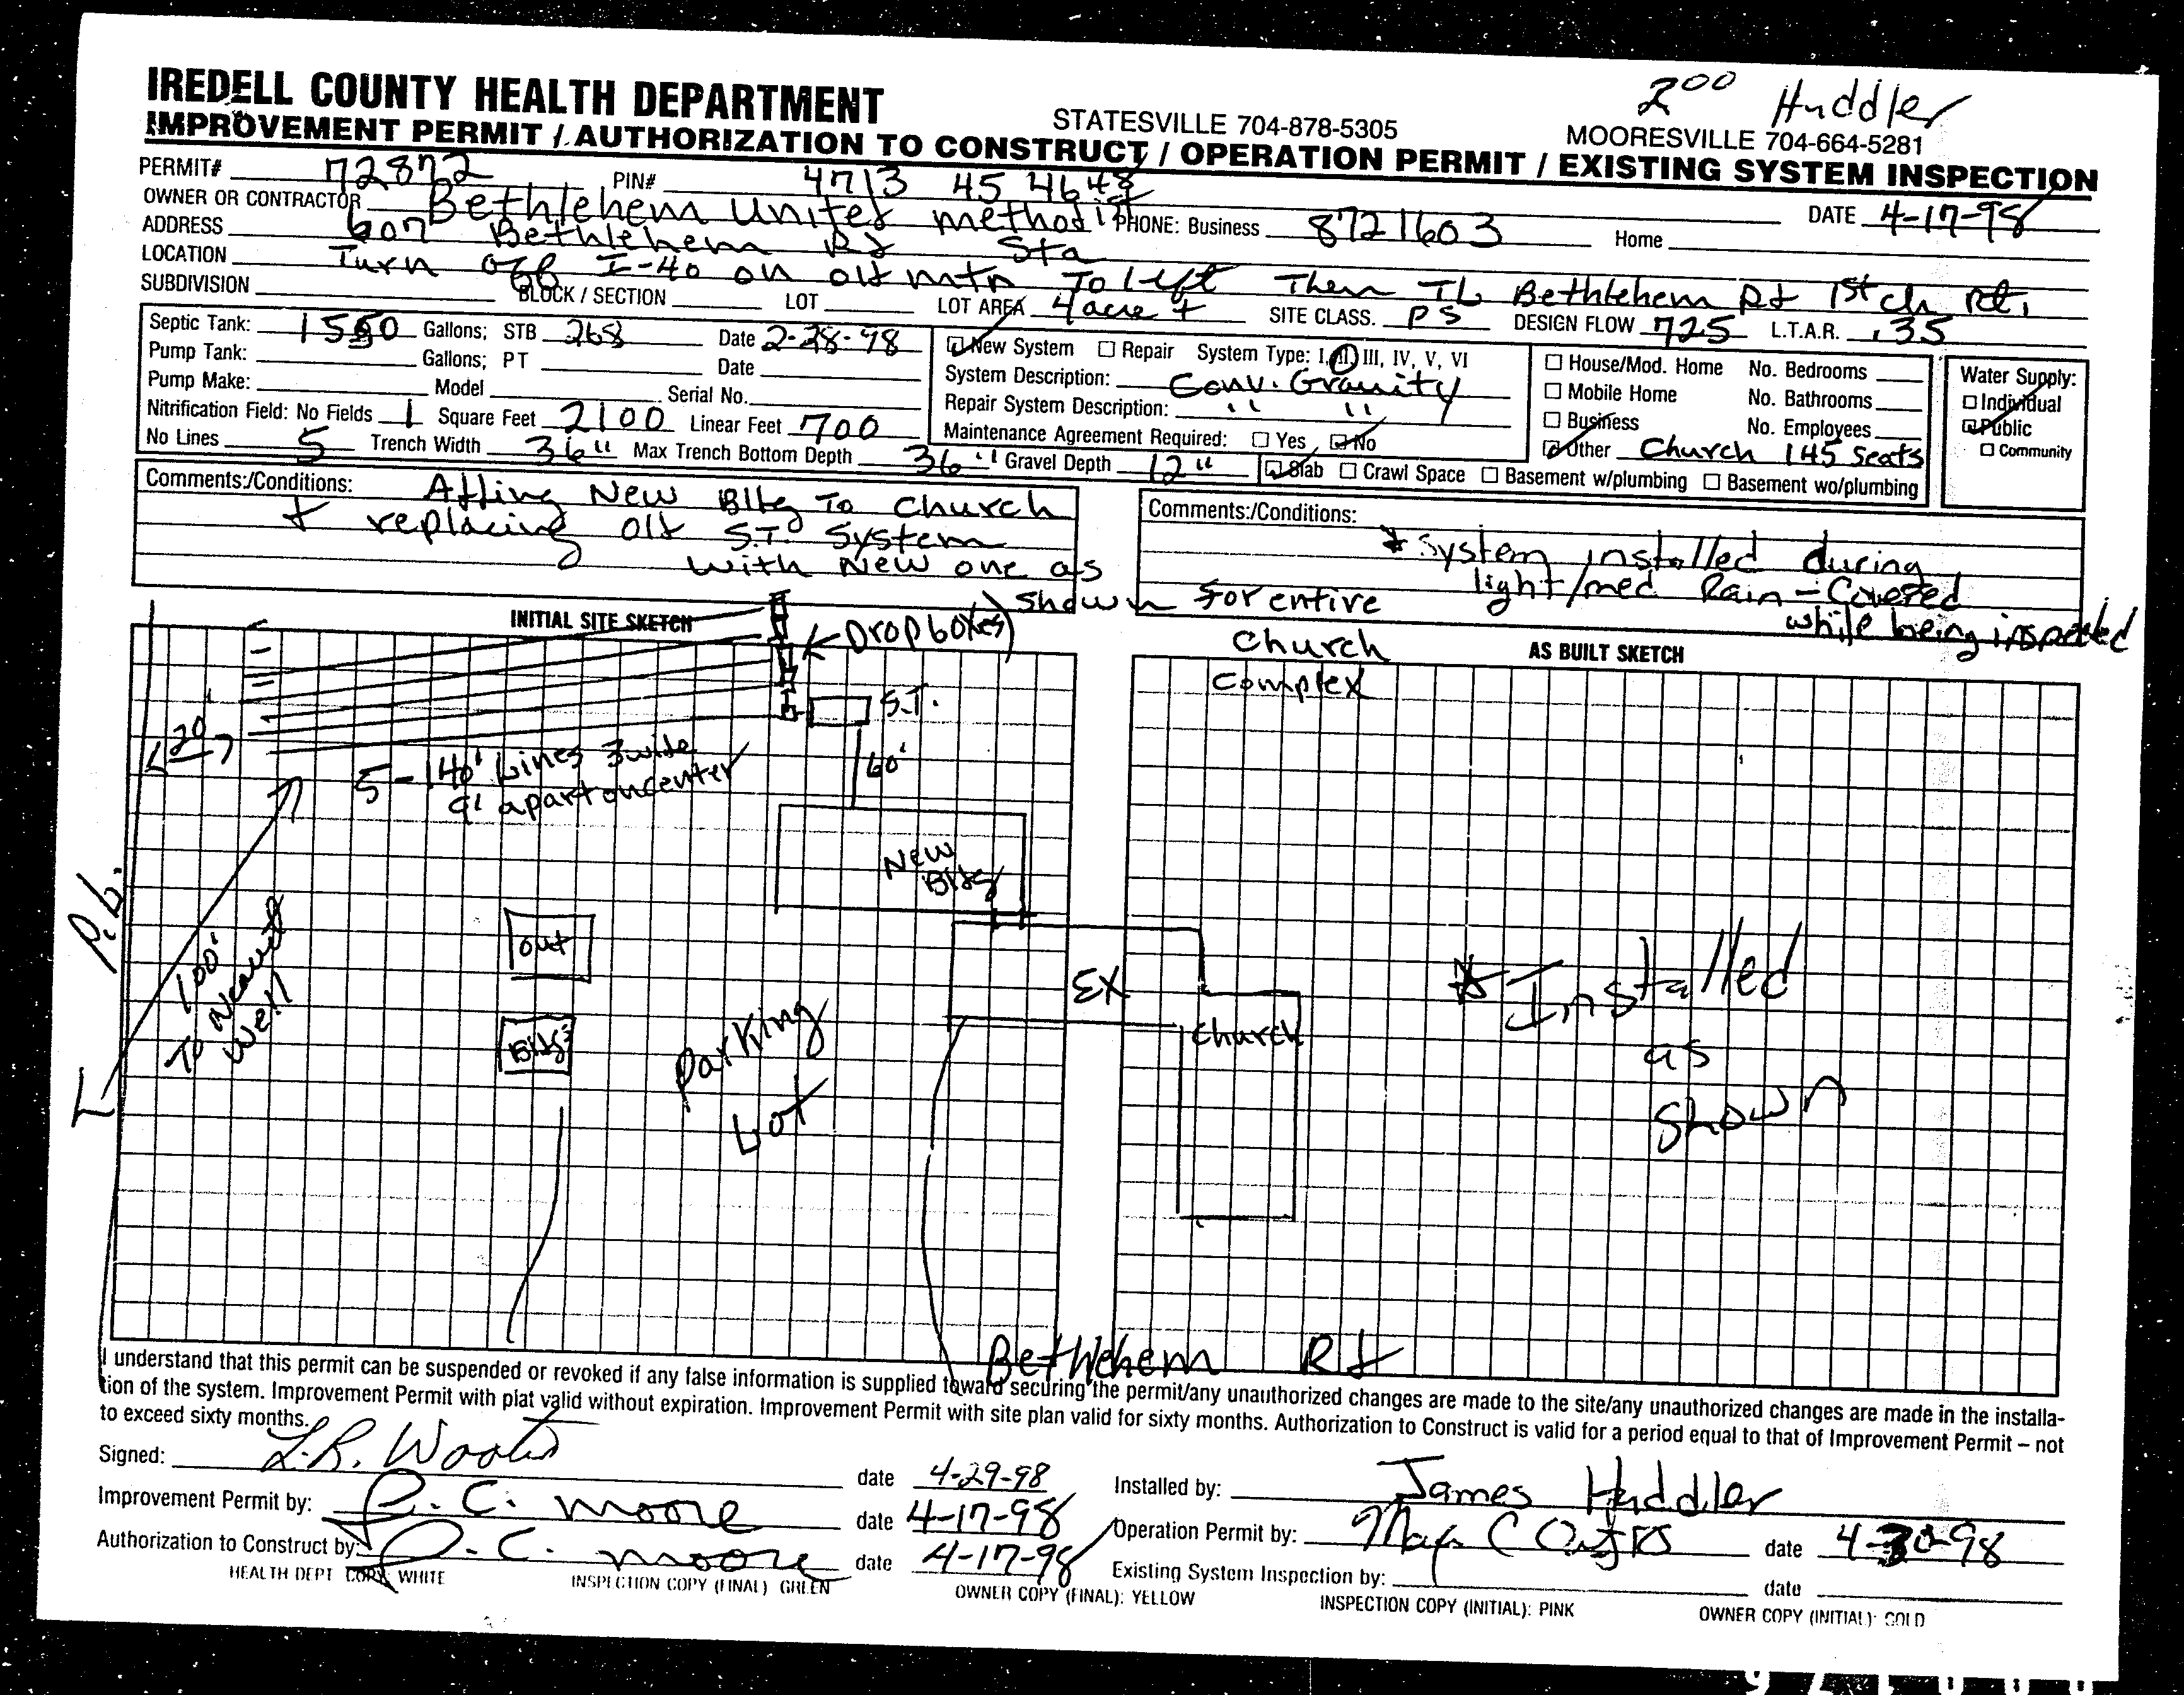 2⁰⁰ Huddler
IREDELL COUNTY HEALTH DEPARTMENT STATESVILLE 704-878-5305 MOORESVILLE 704-664-5281
IMPROVEMENT PERMIT / AUTHORIZATION TO CONSTRUCT / OPERATION PERMIT / EXISTING SYSTEM INSPECTION
PERMIT# 72872 PIN# 4713 45 4648 DATE 4-17-98
OWNER OR CONTRACTOR Bethlehem United methodist PHONE: Business 872 1603 Home
ADDRESS 607 Bethlehem Rd Sta
LOCATION Turn off I-40 on old mtn To Left Then TL Bethlehem Rd 1st ch Rt.
SUBDIVISION BLOCK / SECTION LOT LOT AREA 4 acre + SITE CLASS. PS DESIGN FLOW 725 L.T.A.R. .35
Septic Tank: 1550 Gallons; STB 268 Date 2-28-98
Pump Tank: Gallons; PT Date
Pump Make: Model Serial No.
Nitrification Field: No Fields 1 Square Feet 2100 Linear Feet 700
No Lines 5 Trench Width 36" Max Trench Bottom Depth 36" Gravel Depth 12"
New System Repair System Type: I, II, III, IV, V, VI
System Description: Conv. Gravity
Repair System Description: " "
Maintenance Agreement Required: Yes No
House/Mod. Home No. Bedrooms
Mobile Home No. Bathrooms
Business No. Employees
Other Church 145 seats
Slab Crawl Space Basement w/plumbing Basement wo/plumbing
Water Supply:
Individual
Public
Community
Comments:/Conditions: Adding New Bldg To Church
+ replacing old S.T. System
with New one as
shown for entire
Church
Complex
Comments:/Conditions:
* System installed during
light/med Rain - Covered
while being inspected
INITIAL SITE SKETCH
Dropboxes
S.T.
20'
60'
5-140' Lines 3 wide
9' apart on center
New
Bldg
P.L.
100'
To Nearest
Well
out
Bldgs
Parking
Lot
EX
Church
Bethlehem Rd
AS BUILT SKETCH
* Installed
as
Shown
I understand that this permit can be suspended or revoked if any false information is supplied toward securing the permit/any unauthorized changes are made to the site/any unauthorized changes are made in the installa-
tion of the system. Improvement Permit with plat valid without expiration. Improvement Permit with site plan valid for sixty months. Authorization to Construct is valid for a period equal to that of Improvement Permit – not
to exceed sixty months.
Signed: L.R. date 4-29-98
Improvement Permit by: C. Moore date 4-17-98
Authorization to Construct by: C. Moore date 4-17-98
Installed by: James Huddler
Operation Permit by: date 4-30-98
Existing System Inspection by: date
HEALTH DEPT COPY: WHITE INSPECTION COPY (FINAL) GREEN OWNER COPY (FINAL): YELLOW INSPECTION COPY (INITIAL): PINK OWNER COPY (INITIAL): GOLD